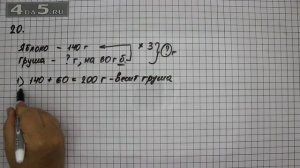 4da5.ru
20.
Яблоко – 140 г × 3
Груша – ? г, на 60 г б. ? г
1) 140 + 60 = 200 г – весит груша